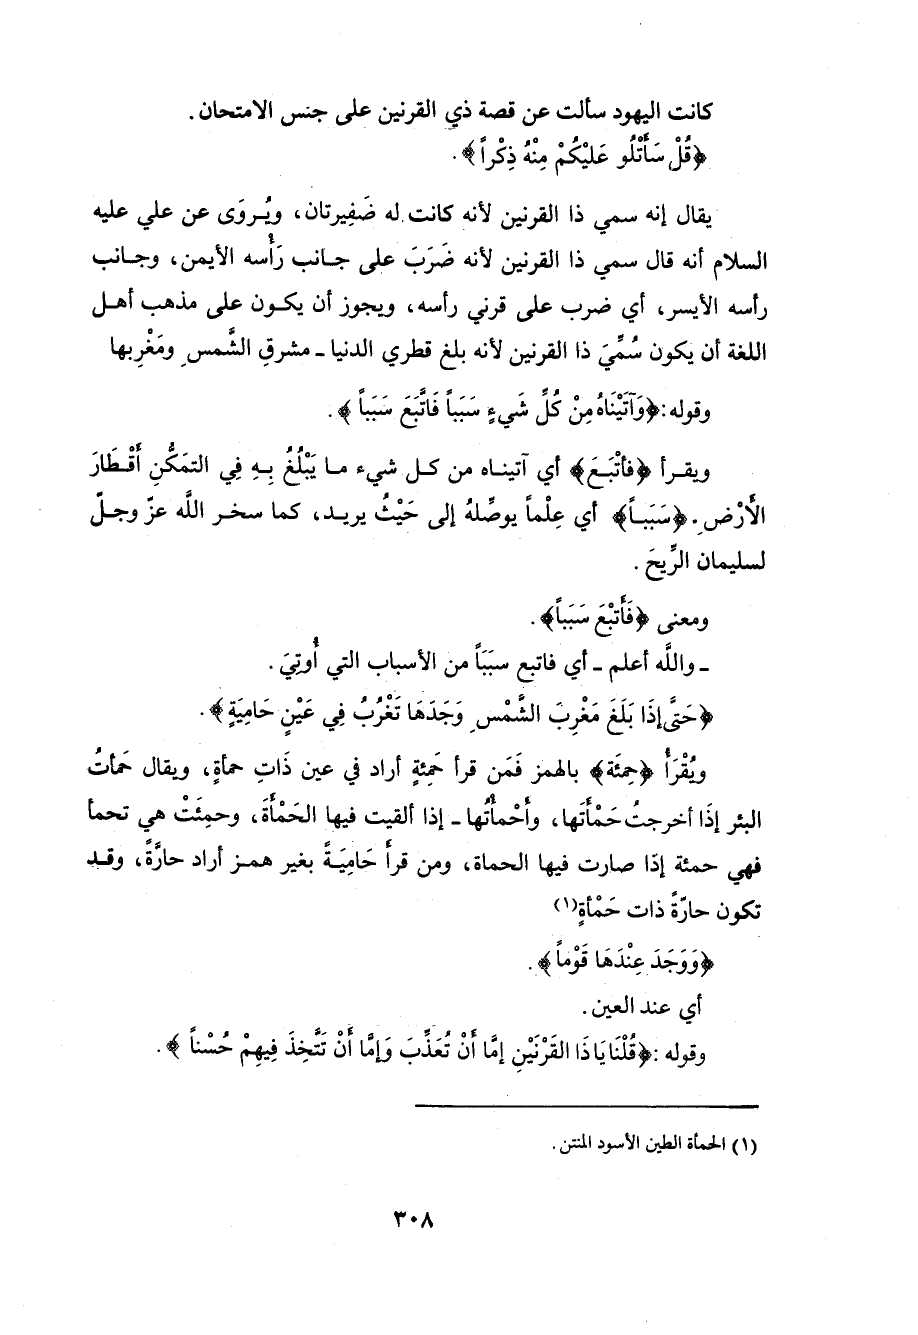 كانت اليهود سألت عن قصة ذي القرنين على جنس الامتحان.
﴿قُلْ سَأَتْلُو عَلَيْكُمْ مِنْهُ ذِكْراً﴾.
يقال إنه سمي ذا القرنين لأنه كانت له ضَفِيرتان، ويُروَى عن علي عليه
السلام أنه قال سمي ذا القرنين لأنه ضَرَبَ على جانب رَأْسه الأيمن، وجانب
رأسه الأيسر، أي ضرب على قرني رأسه، ويجوز أن يكون على مذهب أهل
اللغة أن يكون سُمِّيَ ذا القرنين لأنه بلغ قطري الدنيا ـ مشرقِ الشَّمسِ ومَغْرِبها
وقوله: ﴿وَآتَيْنَاهُ مِنْ كُلِّ شَيءٍ سَبَباً فَاتَّبَعَ سَبَباً﴾.
ويقرأ ﴿فأَتْبَعَ﴾ أي آتيناه من كل شيء ما يَبْلُغُ بِهِ فِي التمَكُّنِ أَقْطَارَ
الأَرْضِ. ﴿سَبَباً﴾ أي عِلْماً يوصِّلهُ إلى حَيْثُ يريد، كما سخر اللَّه عزّ وجلّ
لسليمان الرِّيحَ.
ومعنى ﴿فَأَتْبَعَ سَبَباً﴾.
ـ واللَّه أعلم ـ أي فاتبع سبَبَاً من الأسباب التي أُوتِيَ.
﴿حَتَّى إذَا بَلَغَ مَغْرِبَ الشَّمْسِ وَجَدَهَا تَغْرُبُ فِي عَيْنٍ حَامِيَةٍ﴾.
ويُقْرَأُ ﴿حَمِئَة﴾ بالهمز فَمَن قرأ حَمِئةٍ أراد في عين ذَاتِ حمأةٍ، ويقال حَمأتُ
البئر إذَا أخرجتُ حَمْأَتَها، وأَحْمأْتُها ـ إذا ألقيت فيها الحَمْأَةَ، وحمِئَتْ هي تحمأ
فهي حمئة إذَا صارت فيها الحماة، ومن قرأَ حَامِيَةً بغير همز أراد حارَّةً، وقد
تكون حارّةً ذات حَمْأةٍ(١)
﴿وَوَجَدَ عِنْدَهَا قَوْماً﴾.
أي عند العين.
وقوله: ﴿قُلْنَا يَا ذَا القَرْنَيْنِ إمَّا أَنْ تُعَذِّبَ وَإمَّا أَنْ تَتَّخِذَ فِيهِمْ حُسْناً﴾.
(١) الحمأة الطين الأسود المنتن.
٣٠٨